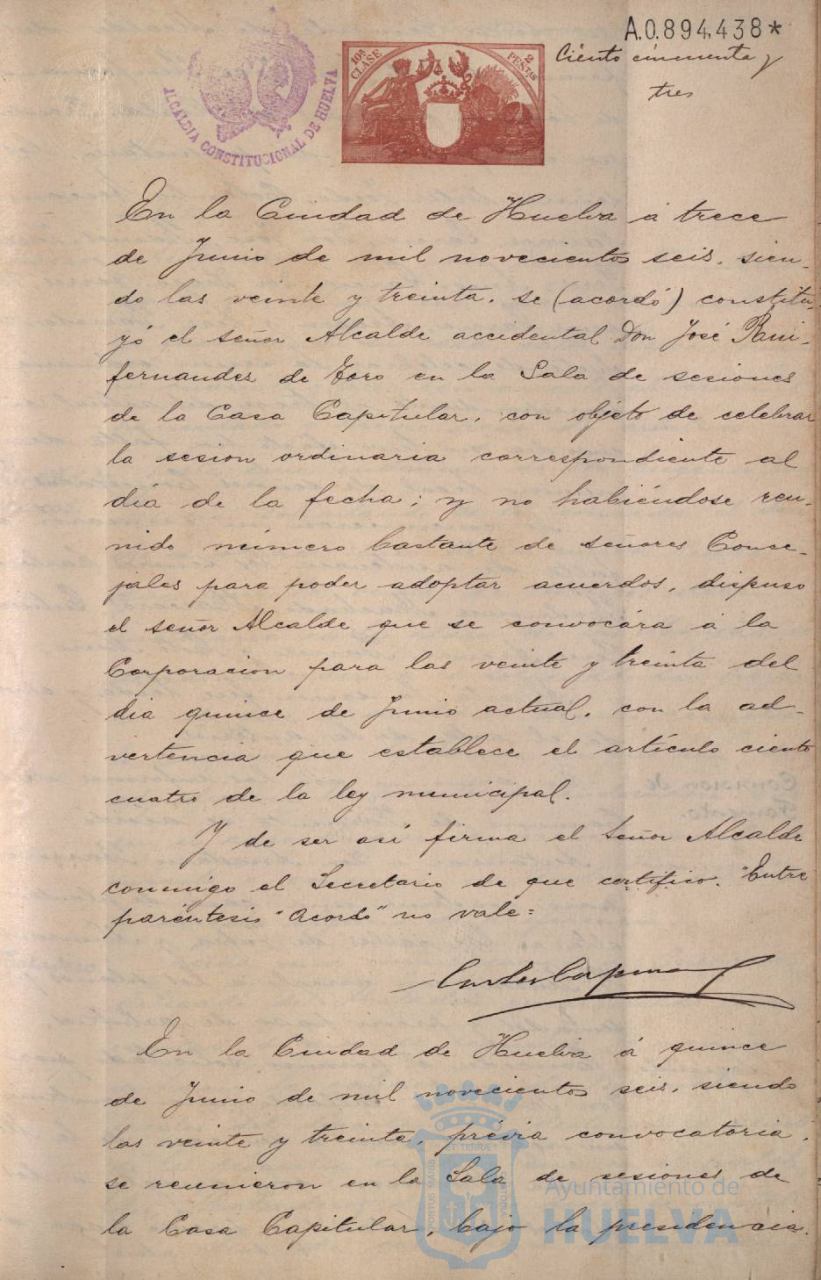 A.0.894,438*
Ciento cincuenta y
tres
10ª CLASE
2 PESETAS
ALCALDIA CONSTITUCIONAL DE HUELVA
En la Ciudad de Huelva á trece
de Junio de mil novecientos seis, sien-
do las veinte y treinta, se (acordó) constitu-
yó el señor Alcalde accidental Don José
fernandez de Toro en la Sala de sesiones
de la Casa Capitular, con objeto de celebrar
la sesion ordinaria correspondiente al
día de la fecha; y no habiéndose reu-
nido número bastante de señores Conce-
jales para poder adoptar acuerdos, dispuso
el señor Alcalde que se convocára á la
Corporacion para las veinte y treinta del
dia quince de Junio actual, con la ad-
vertencia que establece el artículo ciento
cuatro de la ley municipal.
Y de ser así firma el Señor Alcalde
conmigo el Secretario de que certifico. Entre
paréntesis "acordó" no vale=
En la Ciudad de Huelva á quince
de Junio de mil novecientos seis, siendo
las veinte y treinta, prévia convocatoria,
se reunieron en la Sala de sesiones de
la Casa Capitular, bajo la presidencia
Ayuntamiento de
HUELVA